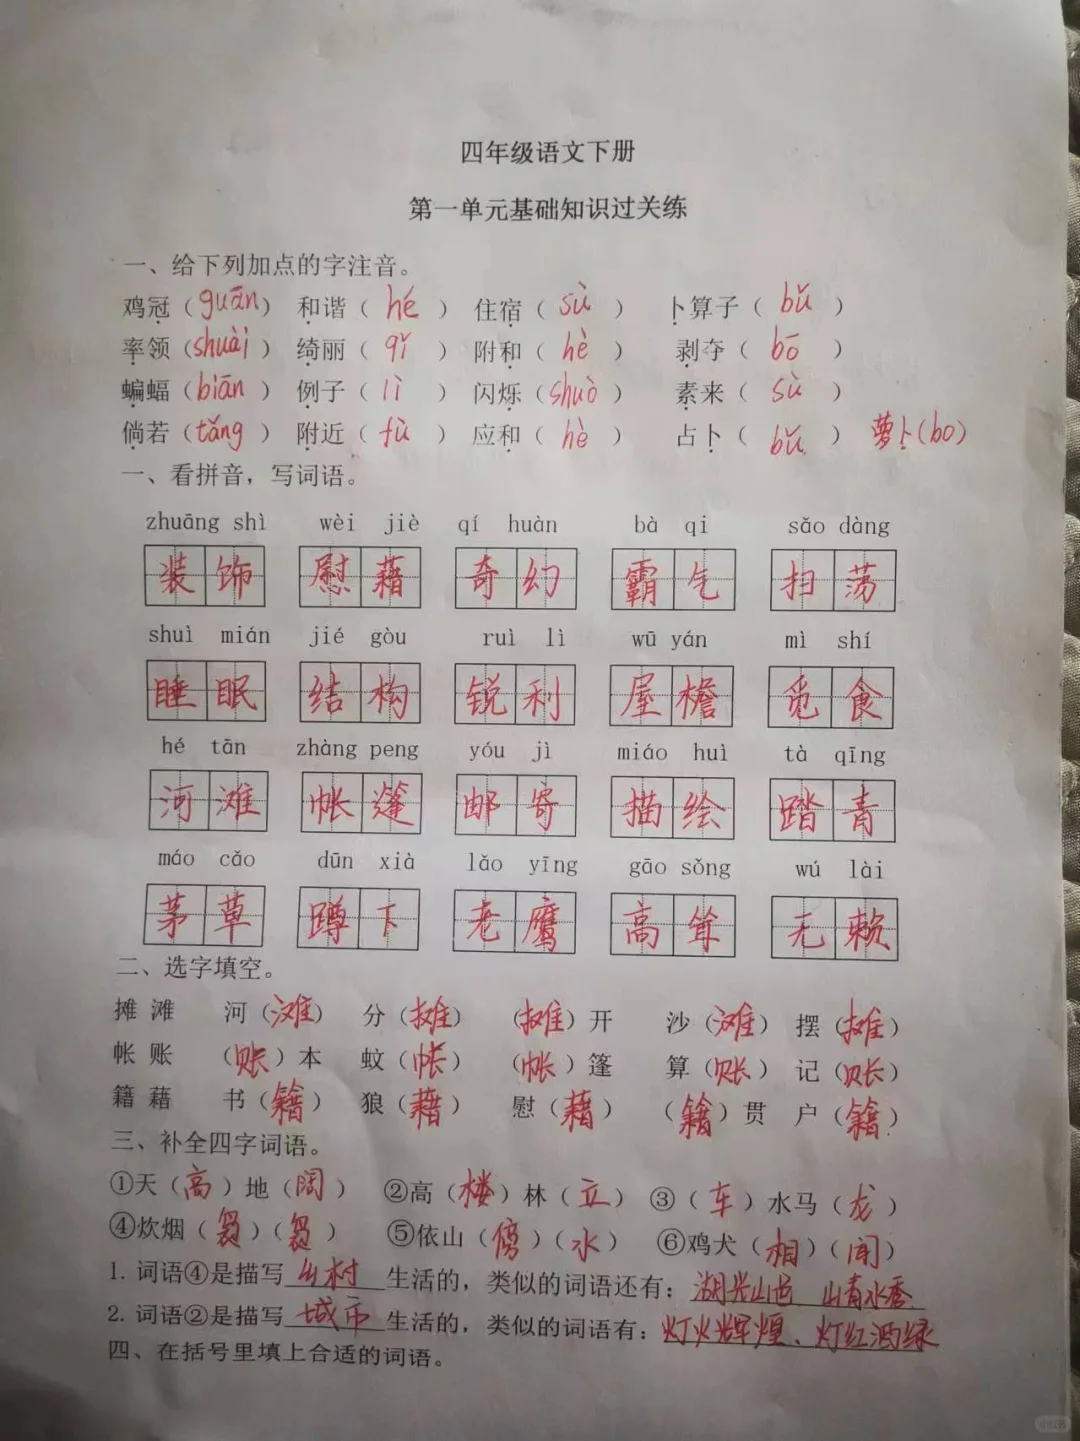 四年级语文下册
第一单元基础知识过关练
一、给下列加点的字注音。
鸡冠（guān） 和谐（hé） 住宿（sù） 卜算子（bǔ）
率领（shuài） 绮丽（qǐ） 附和（hè） 剥夺（bō）
蝙蝠（biān） 例子（lì） 闪烁（shuò） 素来（sù）
倘若（tǎng） 附近（fù） 应和（hè） 占卜（bǔ） 萝卜（bo）
一、看拼音，写词语。
zhuāng shì wèi jiè qí huàn bà qi sǎo dàng
装饰 慰藉 奇幻 霸气 扫荡
shuì mián jié gòu ruì lì wū yán mì shí
睡眠 结构 锐利 屋檐 觅食
hé tān zhàng peng yóu jì miáo huì tà qīng
河滩 帐篷 邮寄 描绘 踏青
máo cǎo dūn xià lǎo yīng gāo sǒng wú lài
茅草 蹲下 老鹰 高耸 无赖
二、选字填空。
摊 滩 河（滩） 分（摊） （摊）开 沙（滩） 摆（摊）
帐 账 （账）本 蚊（帐） （帐）篷 算（账） 记（账）
籍 藉 书（籍） 狼（藉） 慰（藉） （籍）贯 户（籍）
三、补全四字词语。
①天（高）地（阔） ②高（楼）林（立） ③（车）水马（龙）
④炊烟（袅）（袅） ⑤依山（傍）（水） ⑥鸡犬（相）（闻）
1. 词语④是描写乡村生活的，类似的词语还有：湖光山色 山青水秀
2. 词语②是描写城市生活的，类似的词语有：灯火辉煌、灯红酒绿
四、在括号里填上合适的词语。